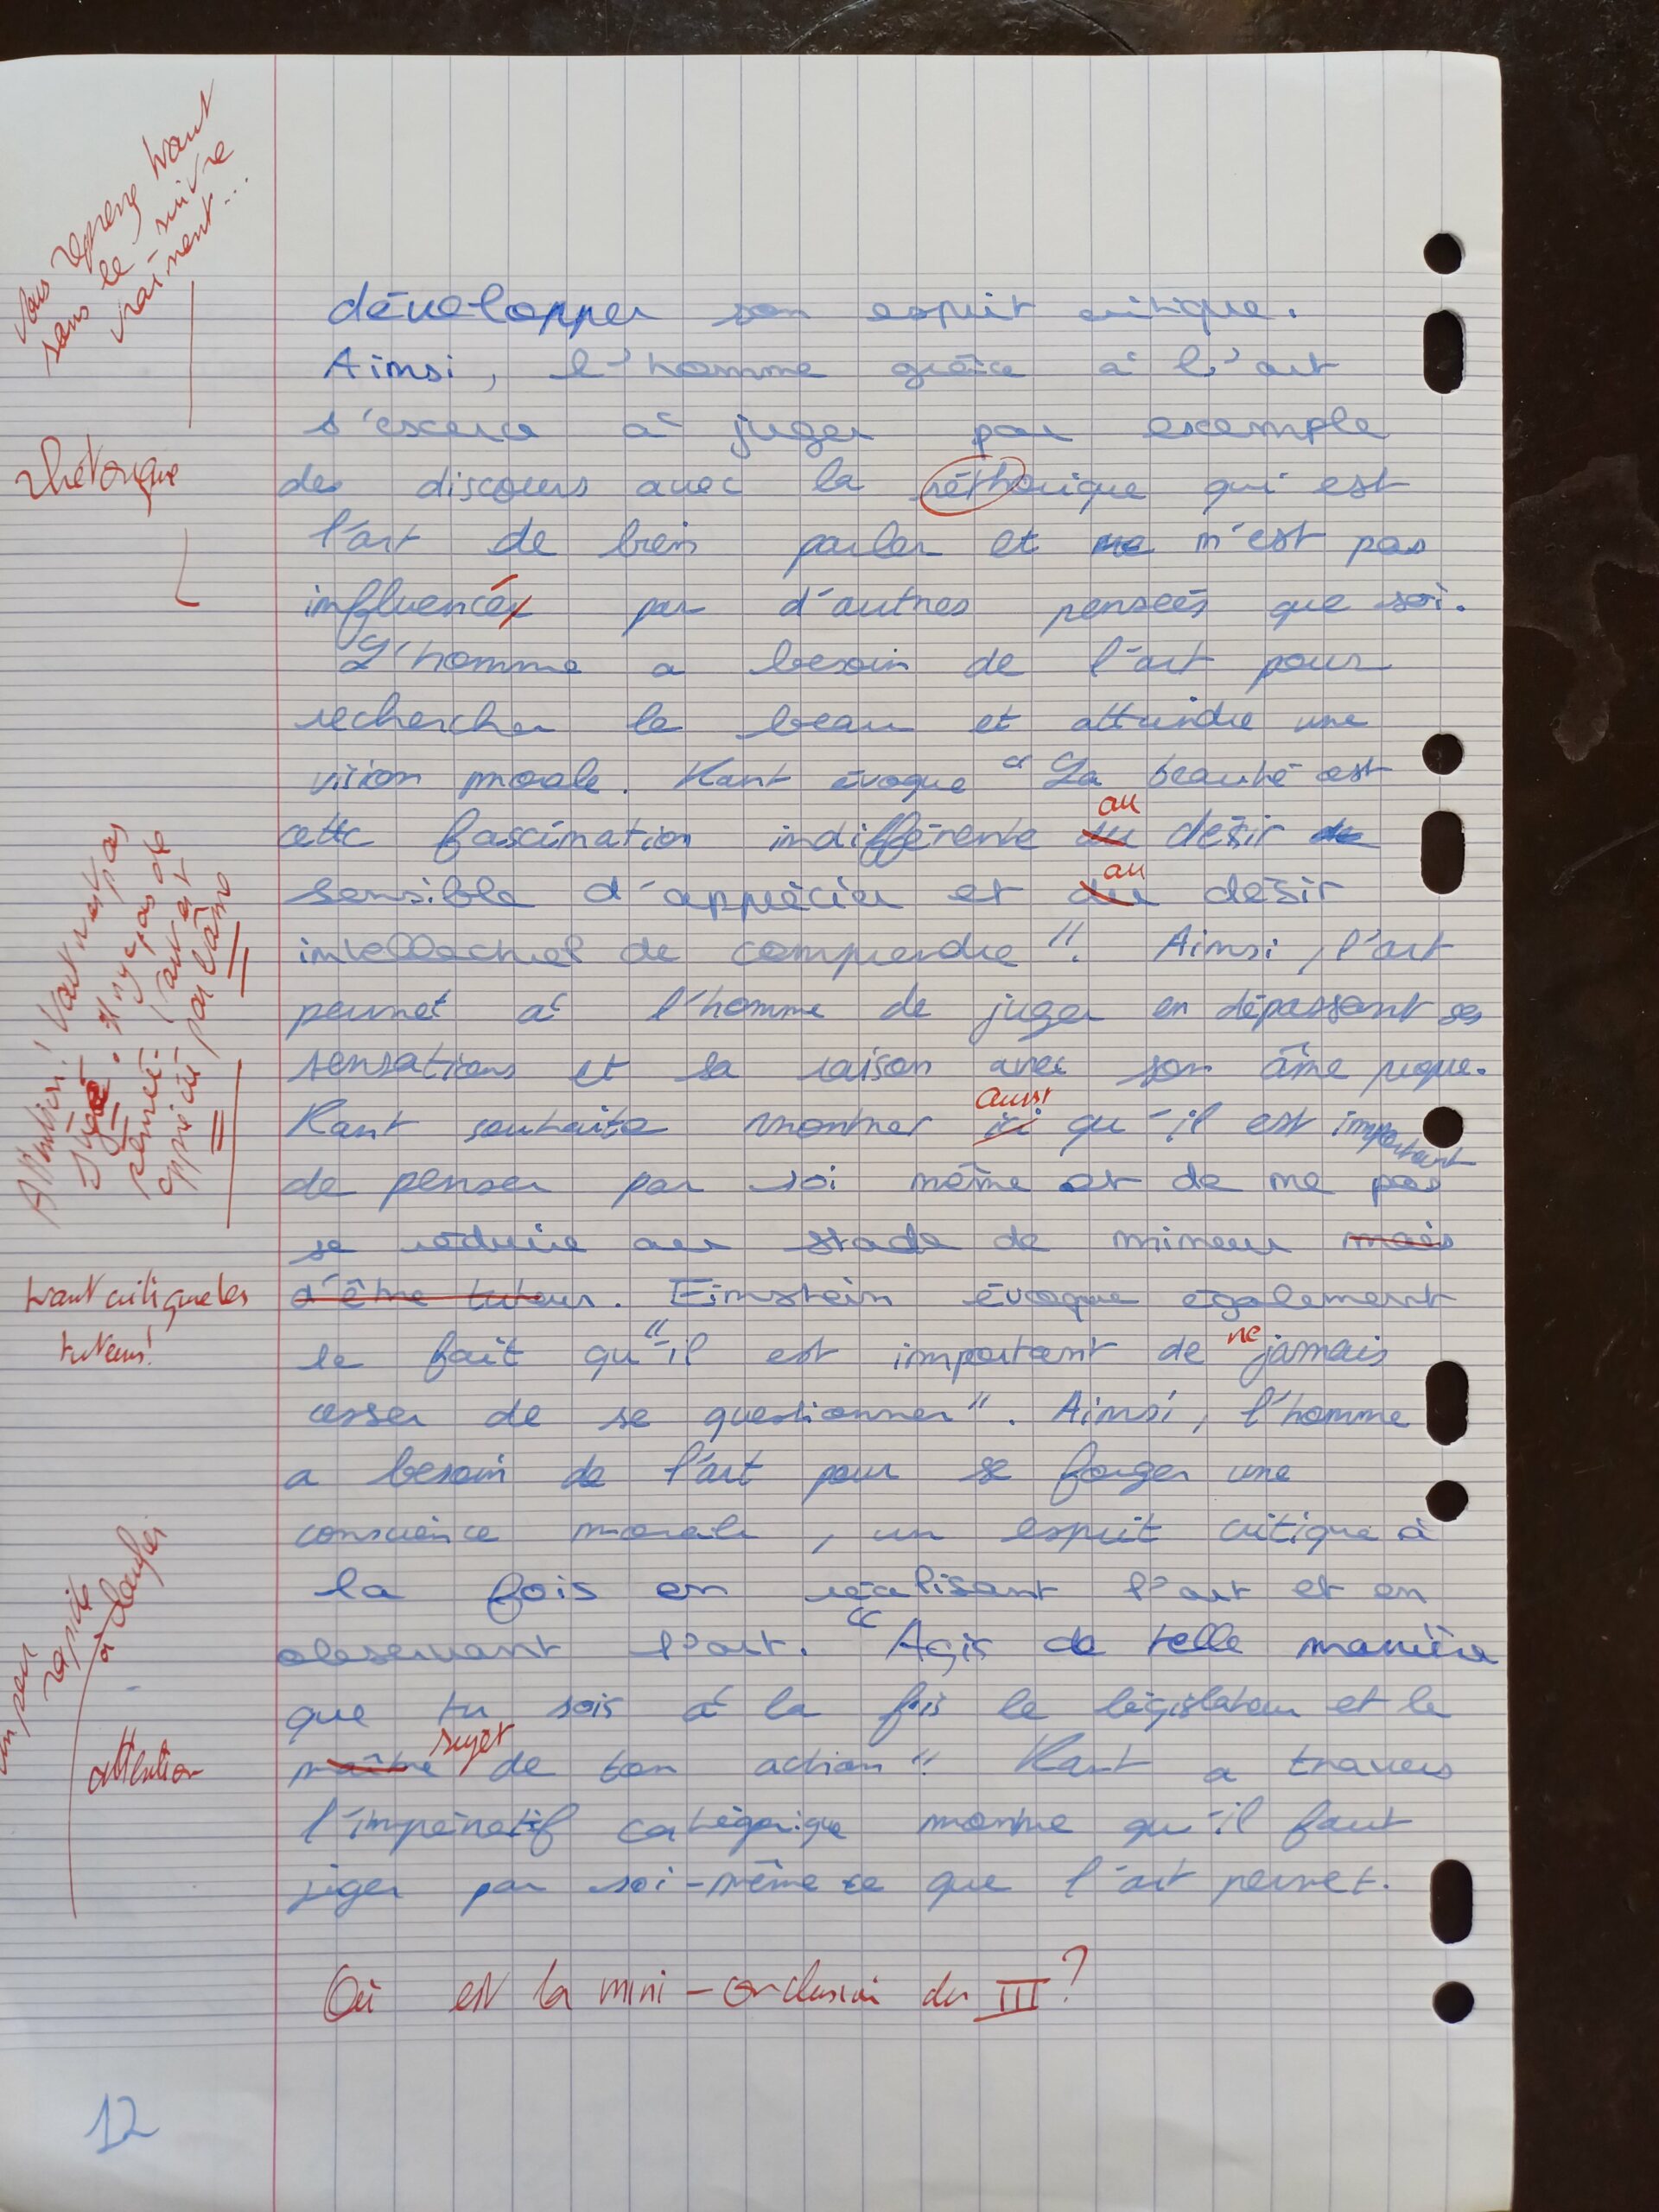 Vous reprenez Kant
sans le suivre
vraiment...
développer son esprit critique.
Ainsi, l'homme grâce à l'art
s'exerce à juger par exemple
rhétorique
des discours avec la réthorique qui est
l'art de bien parler et ne n'est pas
influencé par d'autres pensées que soi.
L'homme a besoin de l'art pour
rechercher le beau et attendre une
vision morale. Kant évoque " La beauté est
au
cette fascination indifférente du désir de
au
sensible d'apprécier et du désir
intellectuel de comprendre". Ainsi, l'art
permet à l'homme de juger en dépassant ses
sensations et sa raison avec son âme propre.
Attention! Kant n'est pas
Il n'y a pas de
l'art est
apprécié par l'âme
aussi
Kant souhaite montrer ici qu'il est important
de penser par soi même et de ne pas
se réduire au stade de mineur mais
Kant critique les
tuteurs!
d'être tuteur. Einstein évoque également
ne
le fait qu'"il est important de jamais
cesser de se questionner". Ainsi, l'homme
a besoin de l'art pour se forger une
conscience morale, un esprit critique à
un peu
rapide
à clarifier
la fois en réalisant l'art et en
observant l'art. "Agis de telle manière
que tu sois à la fois le législateur et le
sujet
attention
maître de ton action" Kant a travers
l'impératif catégorique montre qu'il faut
juger par soi-même ce que l'art permet.
Où est la mini-conclusion du III?
12